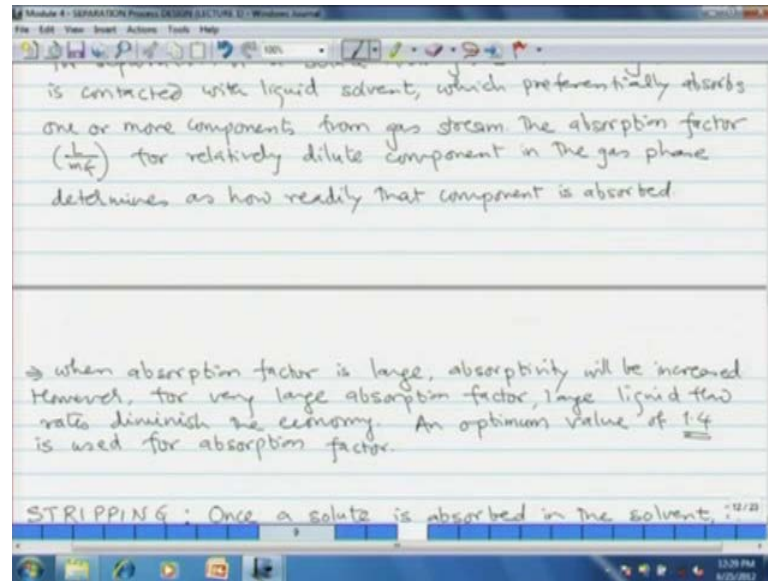 Module 4 - SEPARATION Process DESIGN (LECTURE 1) - Windows Journal
File Edit View Insert Actions Tools Help
100%
is contacted with liquid solvent, which preferentially absorbs
one or more components from gas stream. The absorption factor
(L/mG) for relatively dilute component in the gas phase
determines as how readily that component is absorbed.
⇒ when absorption factor is large, absorptivity will be increased
However, for very large absorption factor, large liquid flow
rates diminish the economy. An optimum value of 1.4
is used for absorption factor.
STRIPPING : Once a solute is absorbed in the solvent,
12/23
9
12:29 PM
6/25/2012